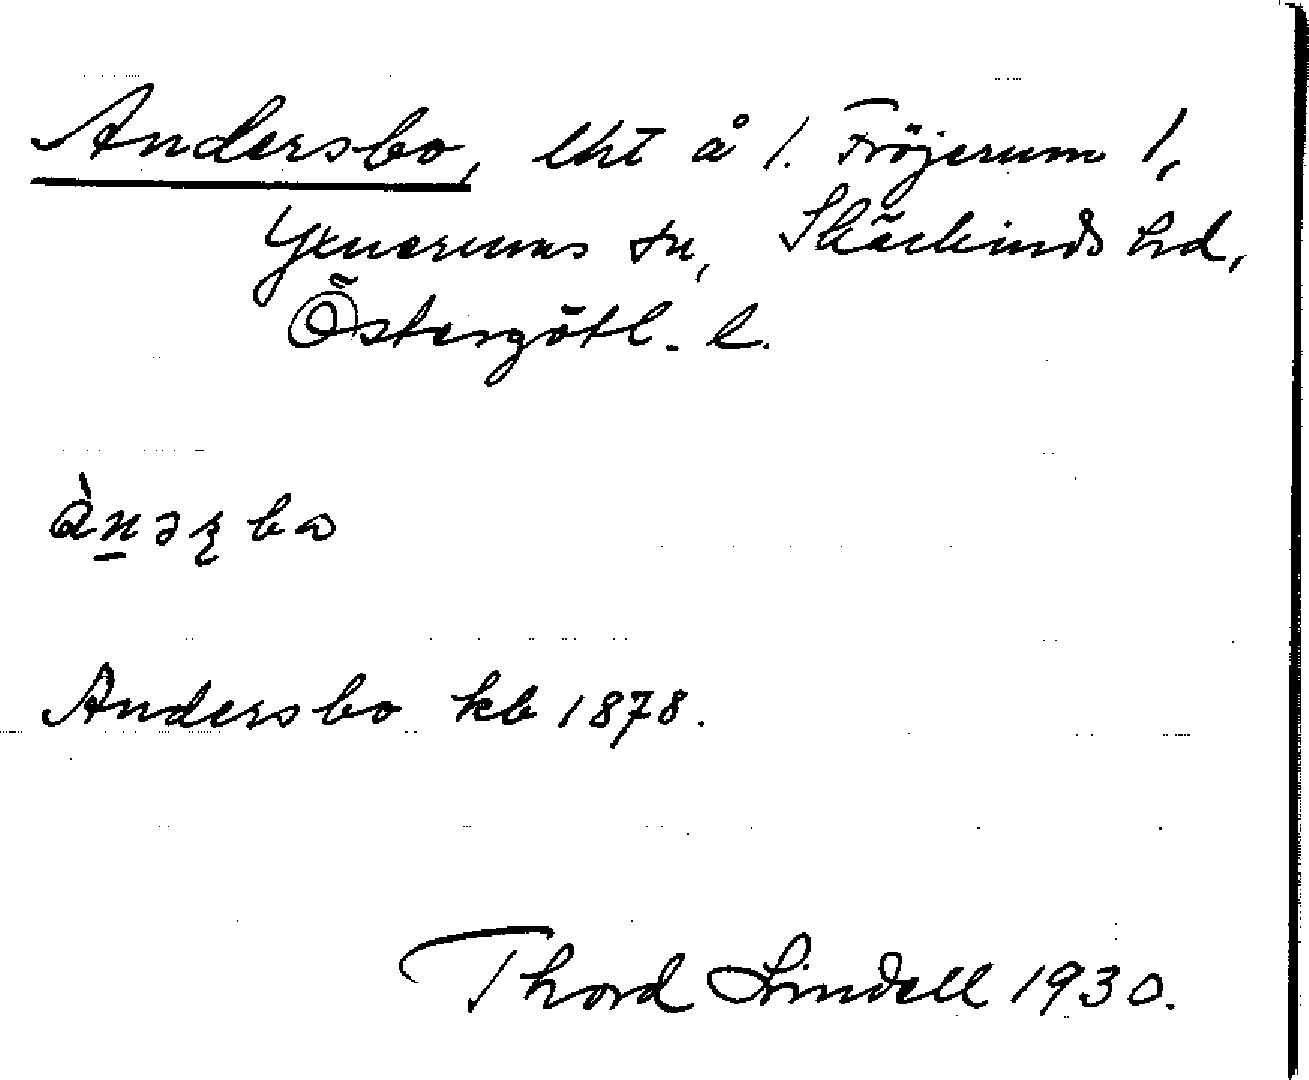 Andersbo, lht å 1. Fröjerum 1,
Yxnerums sn, Skärkinds hd,
Östergötl. l.
ànəʀba
Andersbo kb 1878.
Thord Lindell 1930.